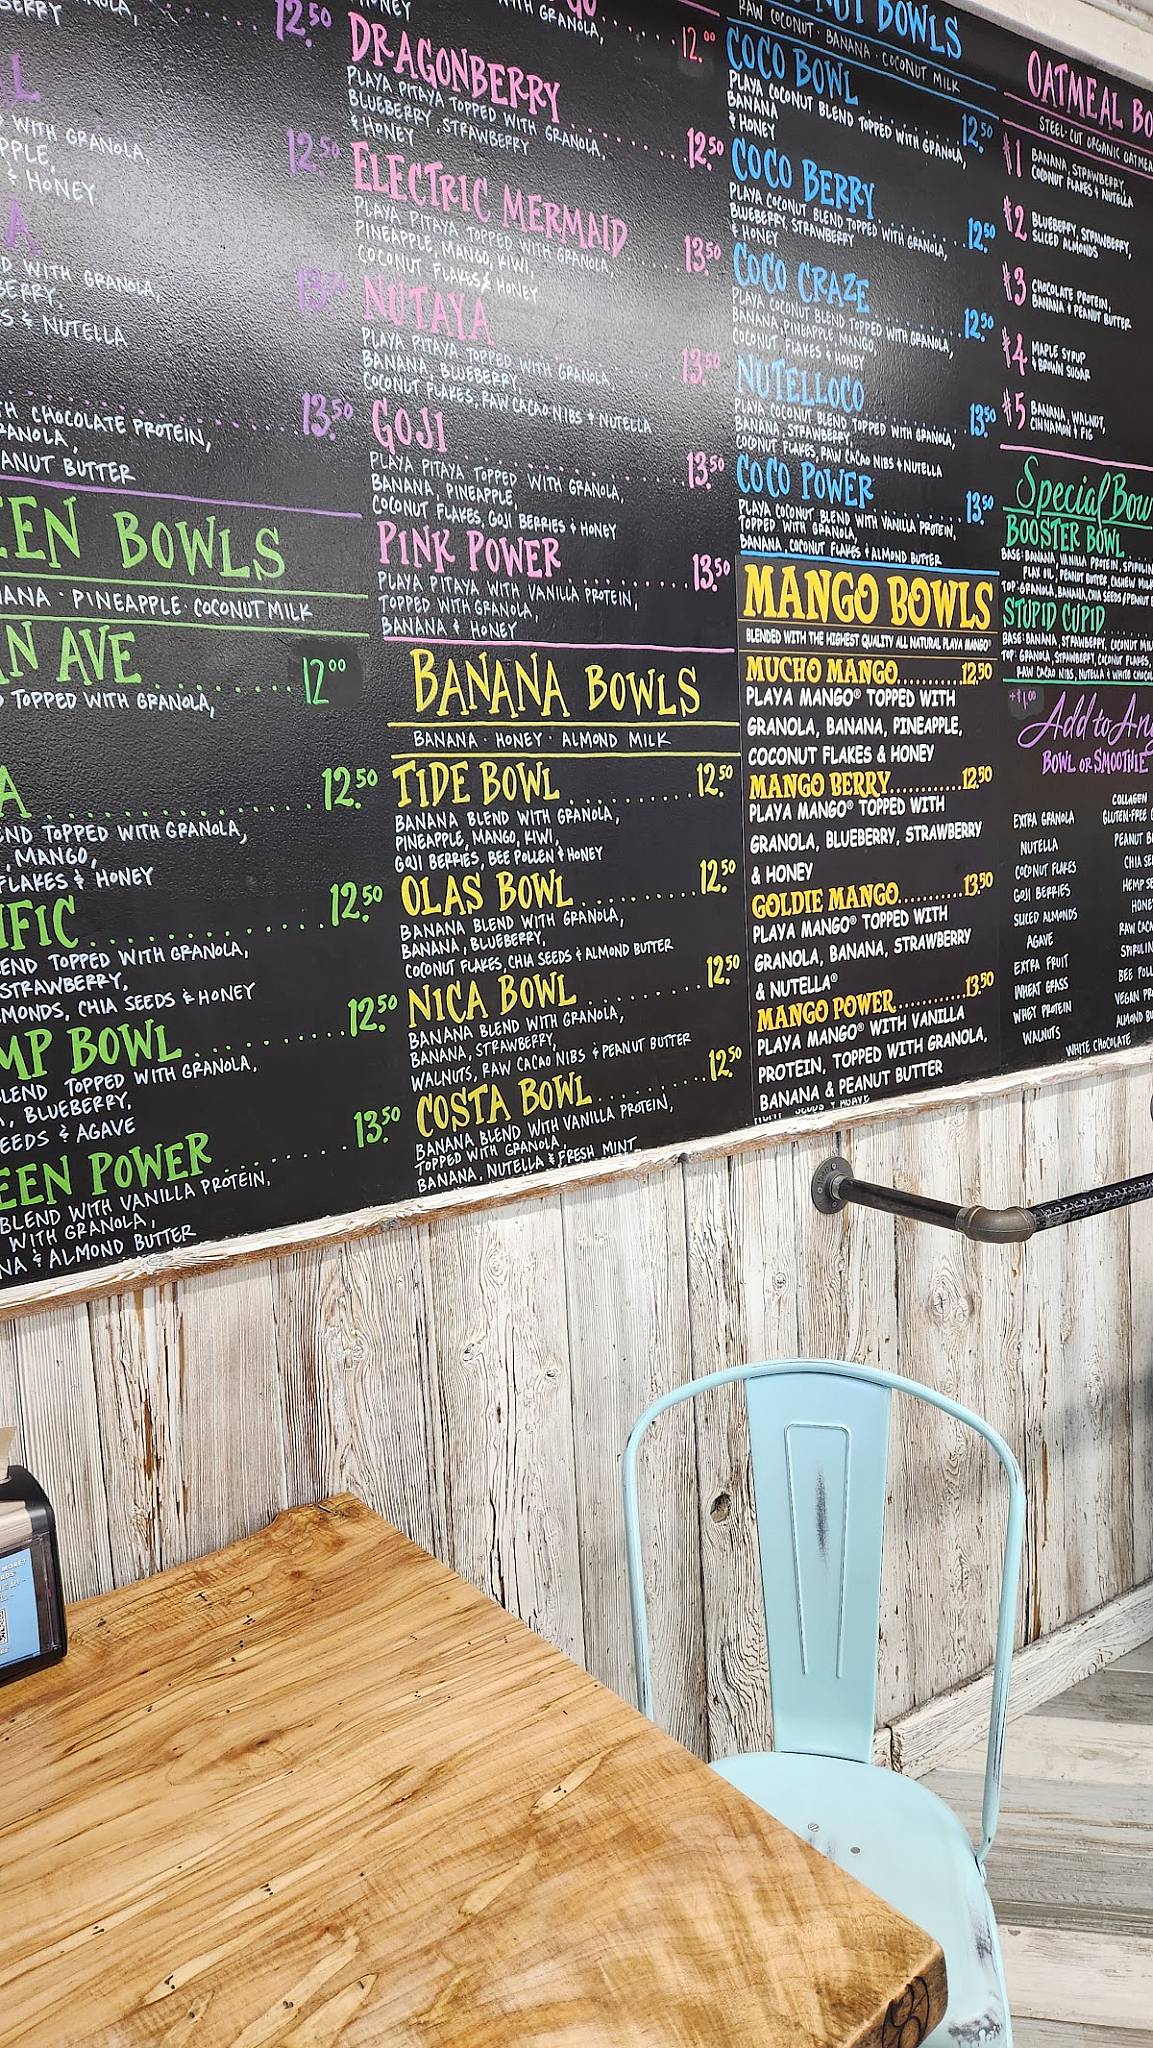 12.50
WITH GRANOLA,
12.50
& HONEY
WITH GRANOLA,
13.50
& NUTELLA
13.50
CHOCOLATE PROTEIN,
BUTTER
BOWLS
PINEAPPLE · COCONUT MILK
AVE
12.00
TOPPED WITH GRANOLA,
12.50
TOPPED WITH GRANOLA,
MANGO,
FLAKES & HONEY
12.50
TOPPED WITH GRANOLA,
STRAWBERRY,
CHIA SEEDS & HONEY
BOWL
12.50
TOPPED WITH GRANOLA,
BLUEBERRY,
& AGAVE
POWER
13.50
BLEND WITH VANILLA PROTEIN,
WITH GRANOLA,
& ALMOND BUTTER
HONEY
DRAGONBERRY
12.50
PLAYA PITAYA TOPPED WITH GRANOLA,
BLUEBERRY, STRAWBERRY
& HONEY
ELECTRIC MERMAID
13.50
PLAYA PITAYA TOPPED WITH GRANOLA,
PINEAPPLE, MANGO, KIWI,
COCONUT FLAKES & HONEY
NUTAYA
13.50
PLAYA PITAYA TOPPED WITH GRANOLA,
BANANA, BLUEBERRY,
COCONUT FLAKES, RAW CACAO NIBS & NUTELLA
GOJI
13.50
PLAYA PITAYA TOPPED WITH GRANOLA,
BANANA, PINEAPPLE,
COCONUT FLAKES, GOJI BERRIES & HONEY
PINK POWER
13.50
PLAYA PITAYA WITH VANILLA PROTEIN,
TOPPED WITH GRANOLA,
BANANA & HONEY
BANANA BOWLS
BANANA · HONEY · ALMOND MILK
TIDE BOWL
12.50
BANANA BLEND WITH GRANOLA,
PINEAPPLE, MANGO, KIWI,
GOJI BERRIES, BEE POLLEN & HONEY
OLAS BOWL
12.50
BANANA BLEND WITH GRANOLA,
BANANA, BLUEBERRY,
COCONUT FLAKES, CHIA SEEDS & ALMOND BUTTER
NICA BOWL
12.50
BANANA BLEND WITH GRANOLA,
BANANA, STRAWBERRY,
WALNUTS, RAW CACAO NIBS & PEANUT BUTTER
COSTA BOWL
12.50
BANANA BLEND WITH VANILLA PROTEIN,
TOPPED WITH GRANOLA,
BANANA, NUTELLA & FRESH MINT
WITH GRANOLA,
12.00
BOWLS
RAW COCONUT · BANANA · COCONUT MILK
COCO BOWL
12.50
PLAYA COCONUT BLEND TOPPED WITH GRANOLA,
BANANA
& HONEY
COCO BERRY
12.50
PLAYA COCONUT BLEND TOPPED WITH GRANOLA,
BLUEBERRY, STRAWBERRY
& HONEY
COCO CRAZE
12.50
PLAYA COCONUT BLEND TOPPED WITH GRANOLA,
BANANA, PINEAPPLE, MANGO,
COCONUT FLAKES & HONEY
NUTELLOCO
13.50
PLAYA COCONUT BLEND TOPPED WITH GRANOLA,
BANANA, STRAWBERRY,
COCONUT FLAKES, RAW CACAO NIBS & NUTELLA
COCO POWER
13.50
PLAYA COCONUT BLEND WITH VANILLA PROTEIN,
TOPPED WITH GRANOLA,
BANANA, COCONUT FLAKES & ALMOND BUTTER
MANGO BOWLS
BLENDED WITH THE HIGHEST QUALITY ALL NATURAL PLAYA MANGO®
MUCHO MANGO..........12.50
PLAYA MANGO® TOPPED WITH
GRANOLA, BANANA, PINEAPPLE,
COCONUT FLAKES & HONEY
MANGO BERRY...........12.50
PLAYA MANGO® TOPPED WITH
GRANOLA, BLUEBERRY, STRAWBERRY
& HONEY
GOLDIE MANGO..........13.50
PLAYA MANGO® TOPPED WITH
GRANOLA, BANANA, STRAWBERRY
& NUTELLA®
MANGO POWER...........13.50
PLAYA MANGO® WITH VANILLA
PROTEIN, TOPPED WITH GRANOLA,
BANANA & PEANUT BUTTER
OATMEAL
STEEL-CUT ORGANIC
#1 BANANA, STRAWBERRY,
COCONUT FLAKES & NUTELLA
#2 BLUEBERRY, STRAWBERRY,
SLICED ALMONDS
#3 CHOCOLATE PROTEIN,
BANANA & PEANUT BUTTER
#4 MAPLE SYRUP
& BROWN SUGAR
#5 BANANA, WALNUT,
CINNAMON & FIG
Special
BOOSTER BOWL
BASE: BANANA, VANILLA PROTEIN,
FLAX OIL, PEANUT BUTTER, CASHEW
TOP: GRANOLA, BANANA, CHIA SEEDS,
STUPID CUPID
BASE: BANANA, STRAWBERRY, COCONUT
TOP: GRANOLA, STRAWBERRY, COCONUT FLAKES,
RAW CACAO NIBS, NUTELLA & WHITE
+$1.00
Add to
BOWL OR SMOOTHIE
EXTRA GRANOLA
NUTELLA
COCONUT FLAKES
GOJI BERRIES
SLICED ALMONDS
AGAVE
EXTRA FRUIT
WHEAT GRASS
WHEY PROTEIN
WALNUTS
COLLAGEN
GLUTEN-FREE
PEANUT
CHIA
HEMP
RAW
BEE
VEGAN
ALMOND
WHITE CHOCOLATE